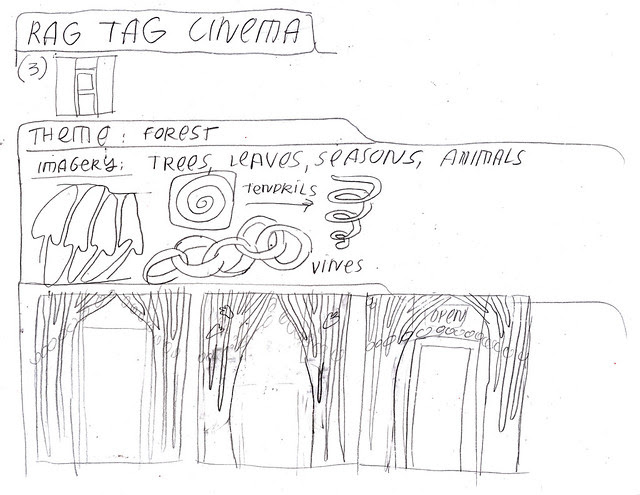 RAG TAG CINEMA
(3)
THEME: FOREST
IMAGERY: TREES, LEAVES, SEASONS, ANIMALS
TENDRILS
VINES
OPEN